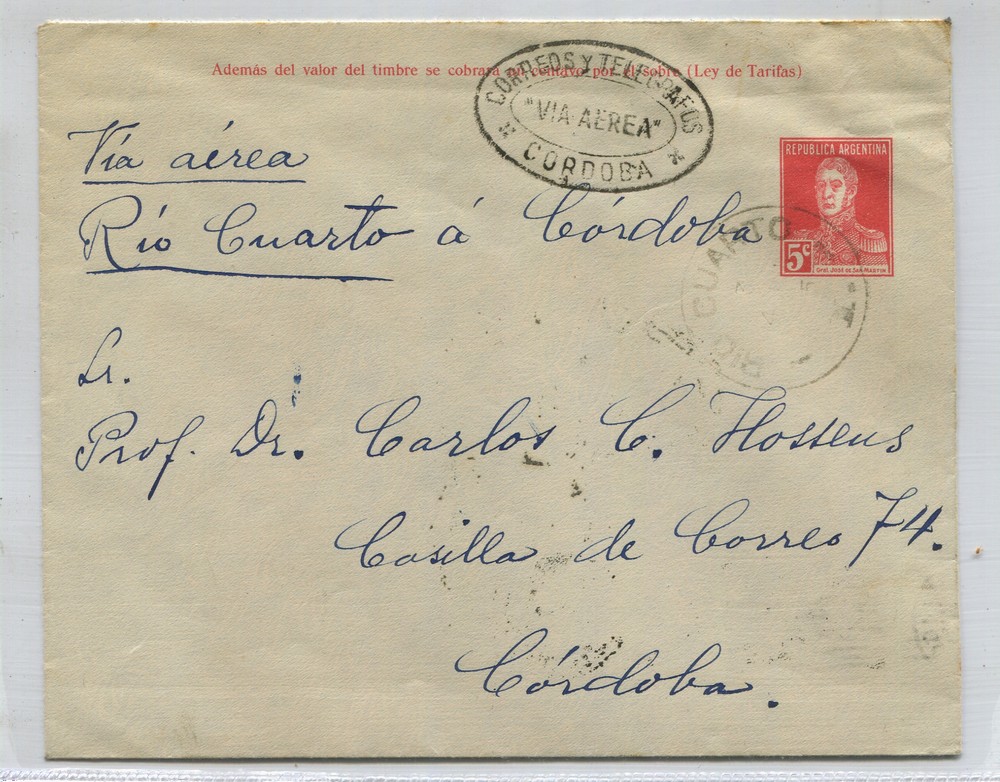 Además del valor del timbre se cobrará un centavo por el sobre (Ley de Tarifas)
CORREOS Y TELEGRAFOS
"VIA AEREA"
CORDOBA
REPUBLICA ARGENTINA
5c
Gral. José de San Martín
RIO CUARTO
Vía aérea
Río Cuarto á Córdoba
Sr.
Prof. Dr. Carlos C. Hosseus
Casilla de Correo 74.
Córdoba.